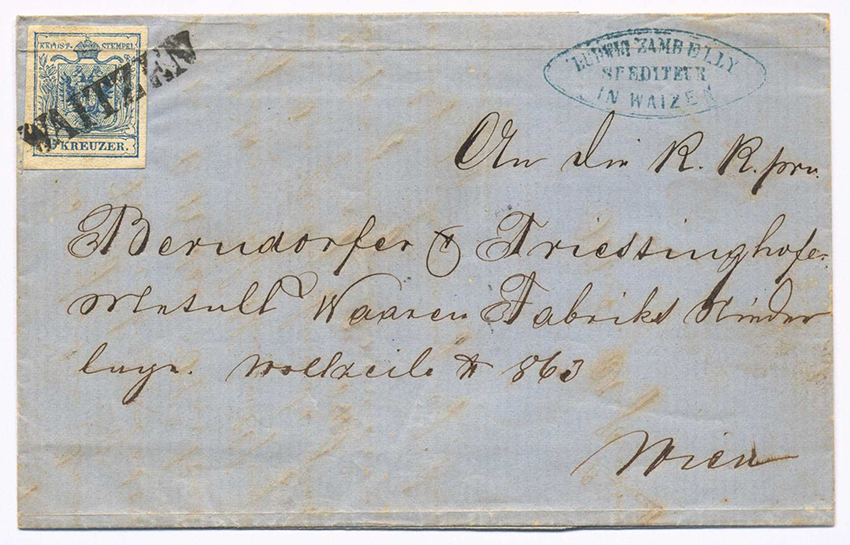 KK.POST-STEMPEL
WAITZEN
KREUZER.
LUDWIG ZAMBELLY
SPEDITEUR
IN WAIZEN
An die K. K. priv.
Berndorfer & Triestinghofer
Metall Waaren Fabriks Nieder
lage. Wollzeile № 863
Wien